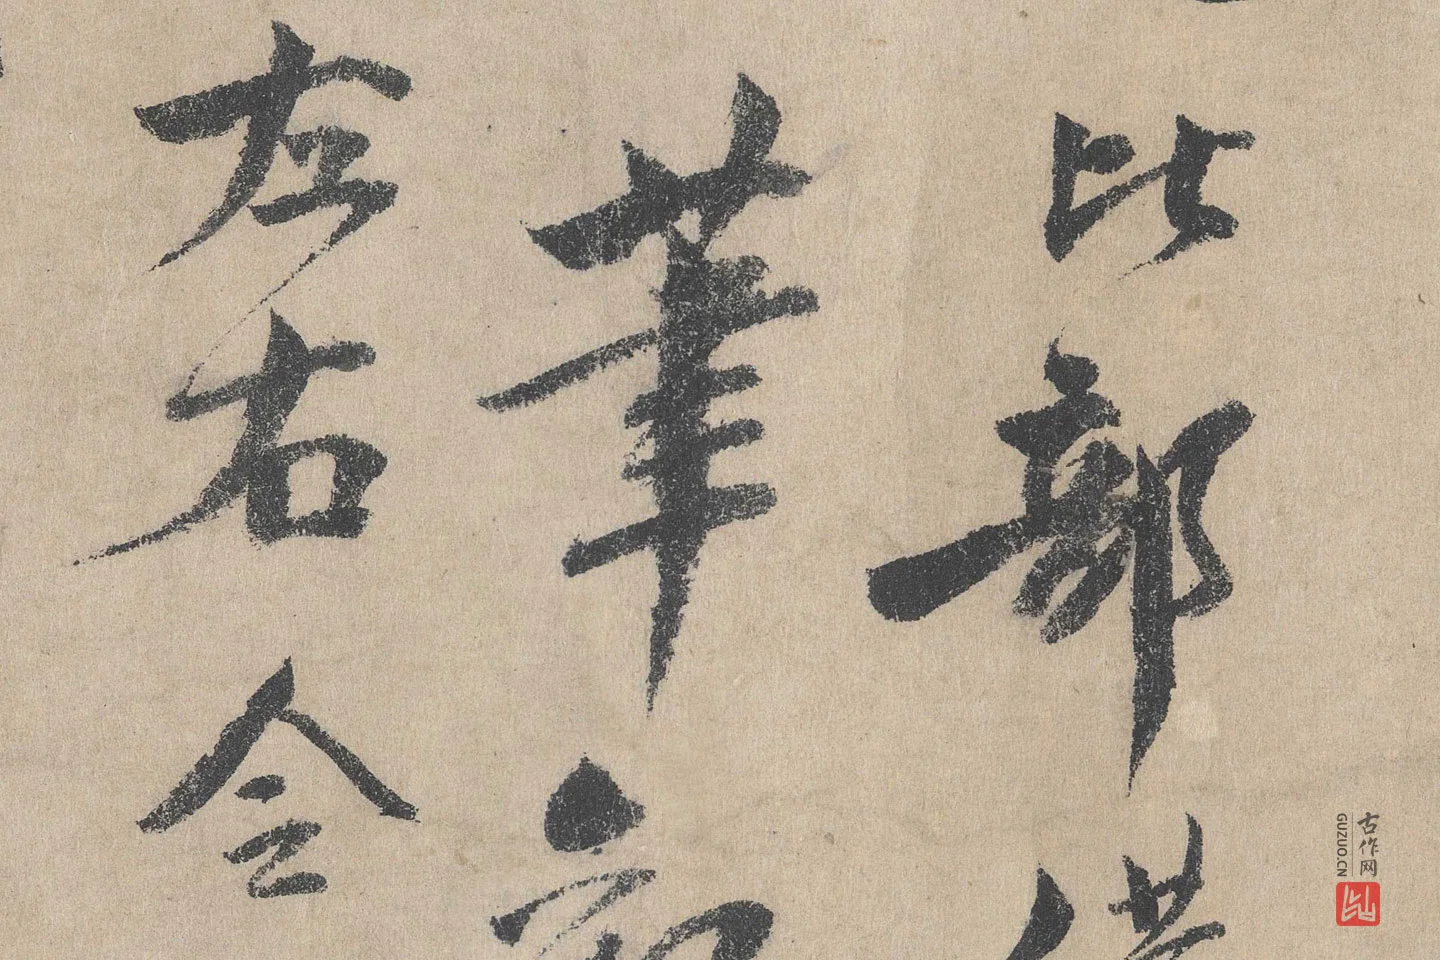 比部
筆
左右令
古作网
GUZUO.CN